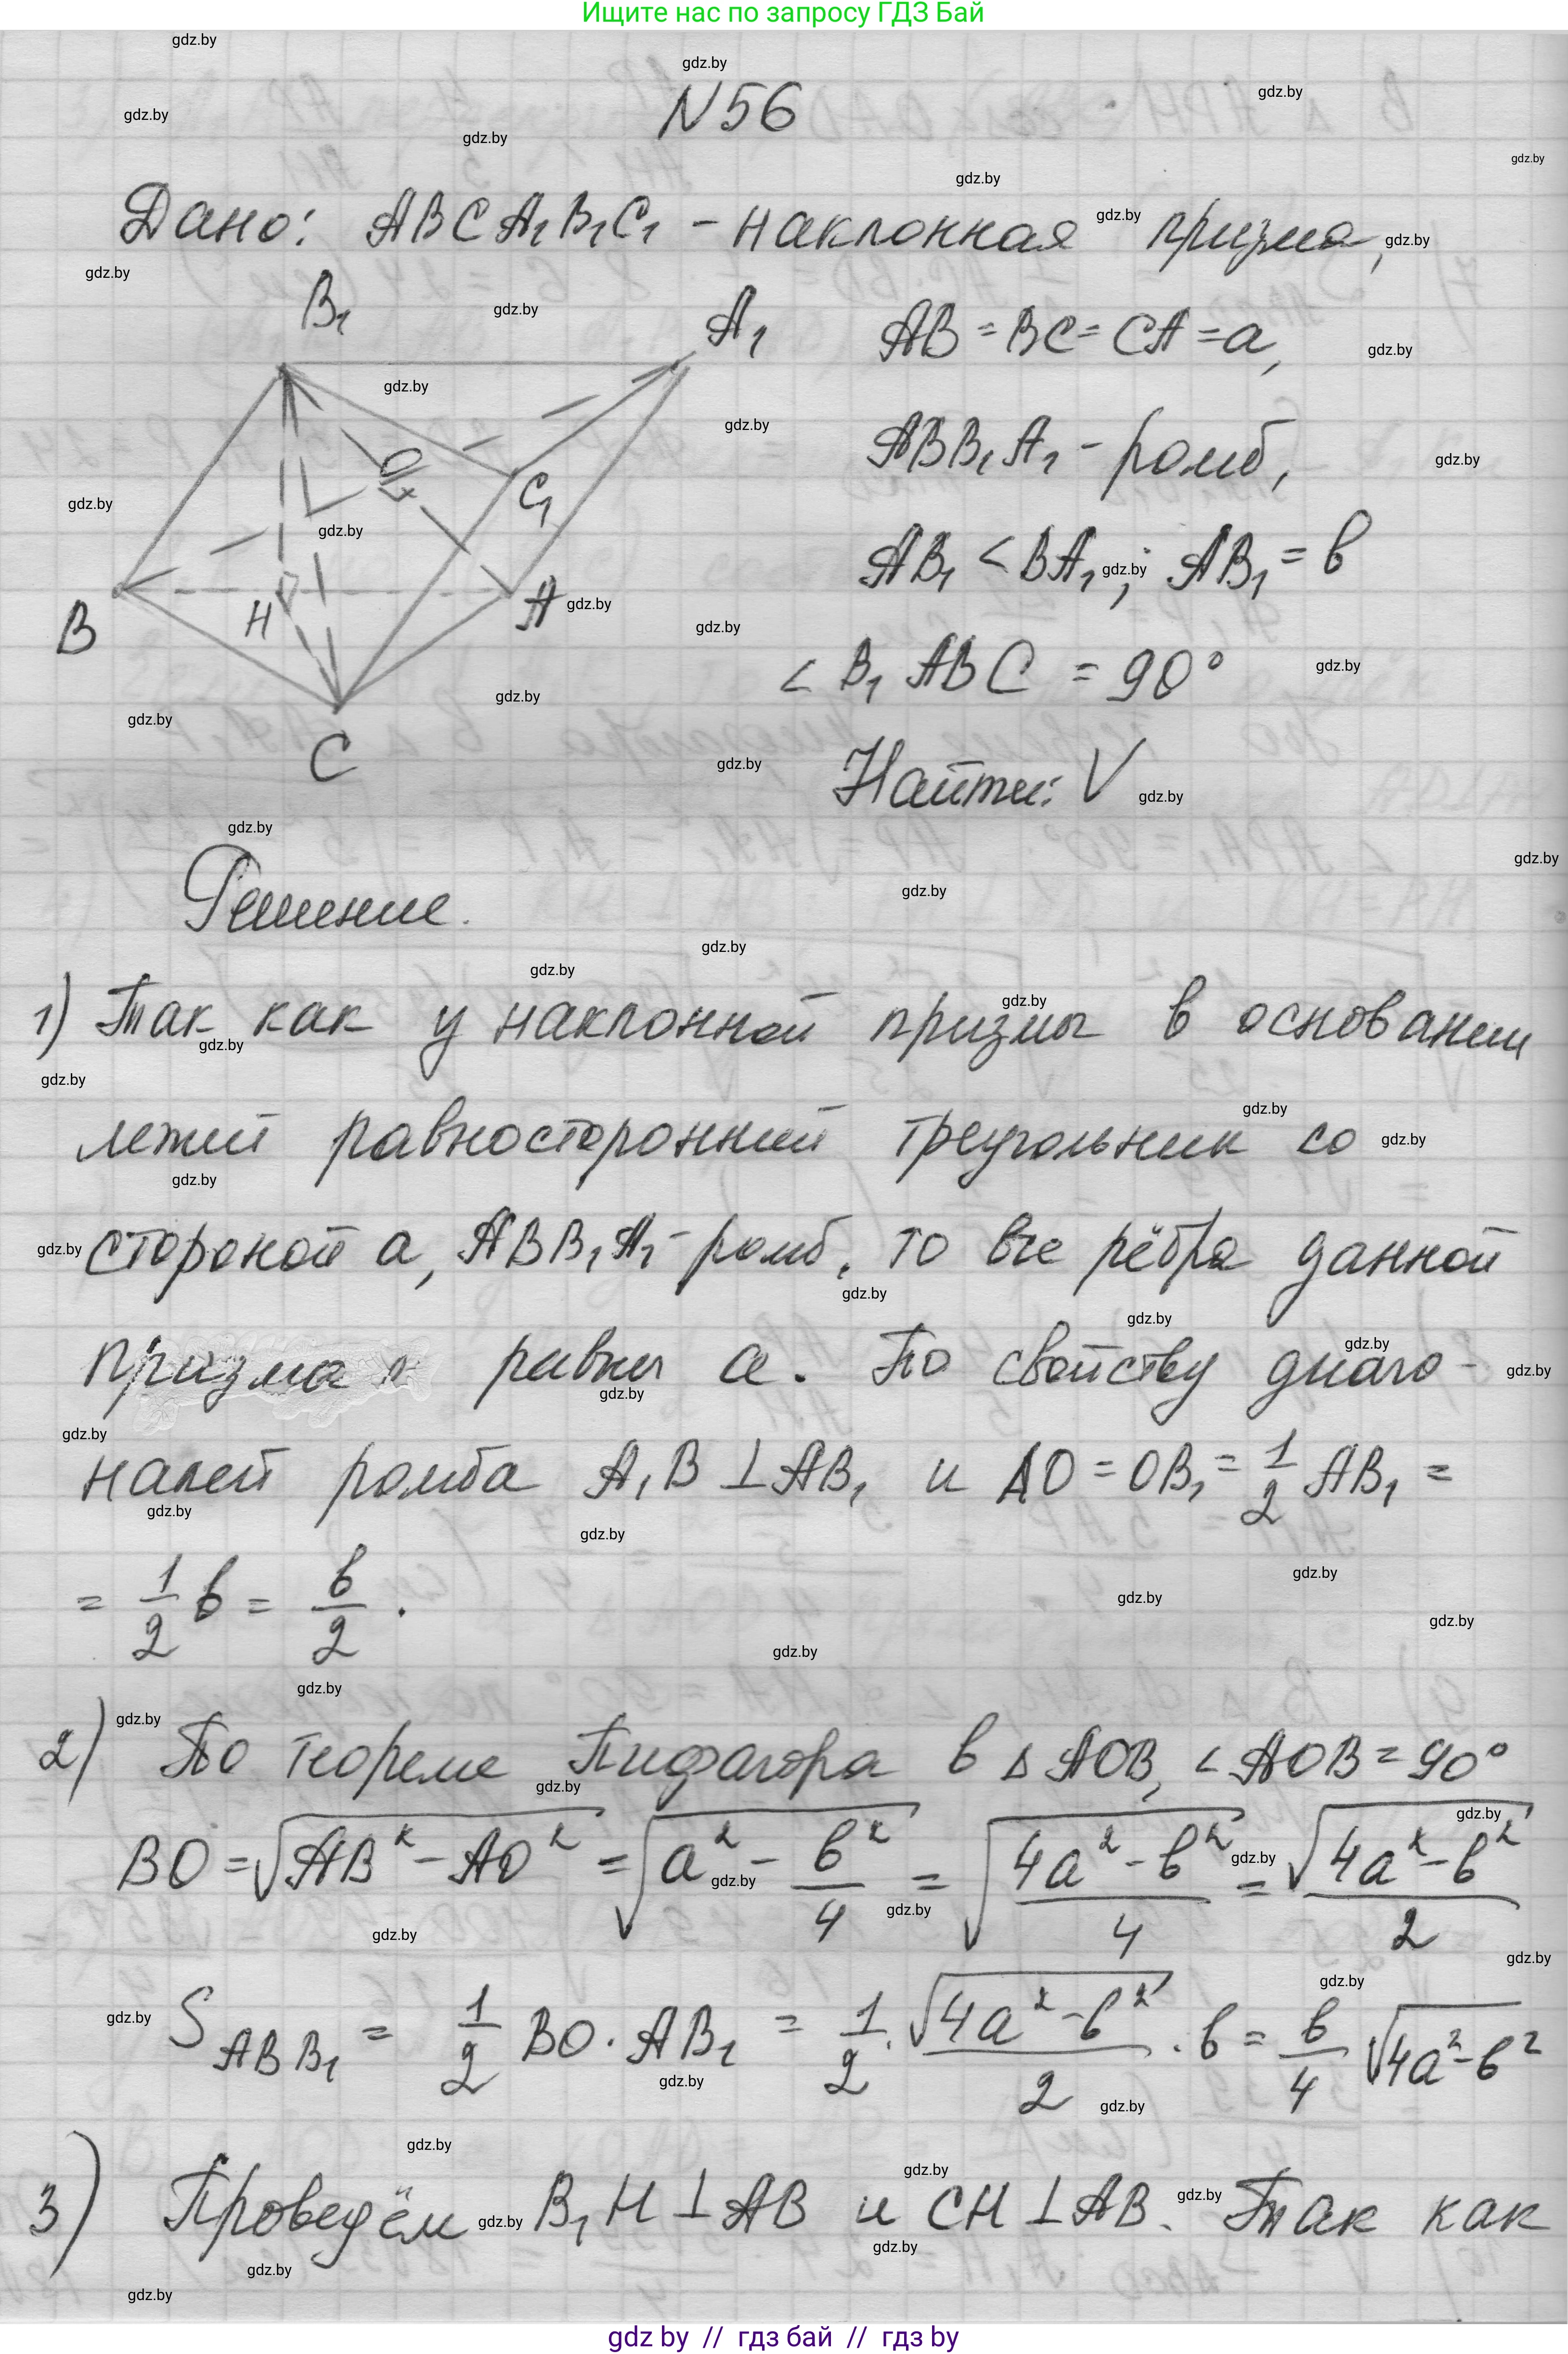 Ищите нас по запросу ГДЗ Бай
N56
Дано: ABCA₁B₁C₁ - наклонная призма,
B₁
A₁
AB = BC = CA = a,
ABB₁A₁ - ромб,
O
C₁
AB₁ < BA₁; AB₁ = b
B
H
A
∠ B₁ABC = 90°
C
Найти: V
Решение.
1) Так как у наклонной призмы в основании
лежит равносторонний треугольник со
стороной a, ABB₁A₁ - ромб, то все рёбра данной
призма равны a. По свойству диаго-
налей ромба A₁B ⊥ AB₁ и AO = OB₁ = 1/2 AB₁ =
= 1/2 b = b/2.
2) По теореме Пифагора в △ AOB, ∠AOB = 90°
BO = √(AB² - AO²) = √(a² - b²/4) = √((4a² - b²)/4) = √(4a² - b²)/2
S ABB₁ = 1/2 BO · AB₁ = 1/2 · √(4a² - b²)/2 · b = b/4 √(4a² - b²)
3) Проведём B₁H ⊥ AB и CH ⊥ AB. Так как
gdz by // гдз бай // гдз by